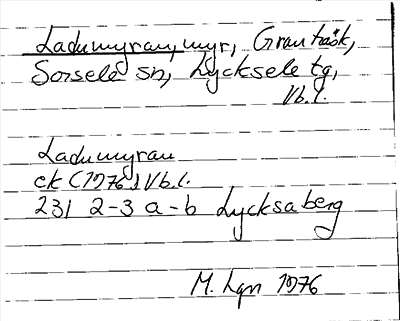 Ladumyran, myr, Granträsk,
Sorsele sn, Lycksele tg,
Vb. l.
Ladumyran
ek (1976) Vb. l.
231 2-3 a-b Lycksaberg
M. Lgn 1976